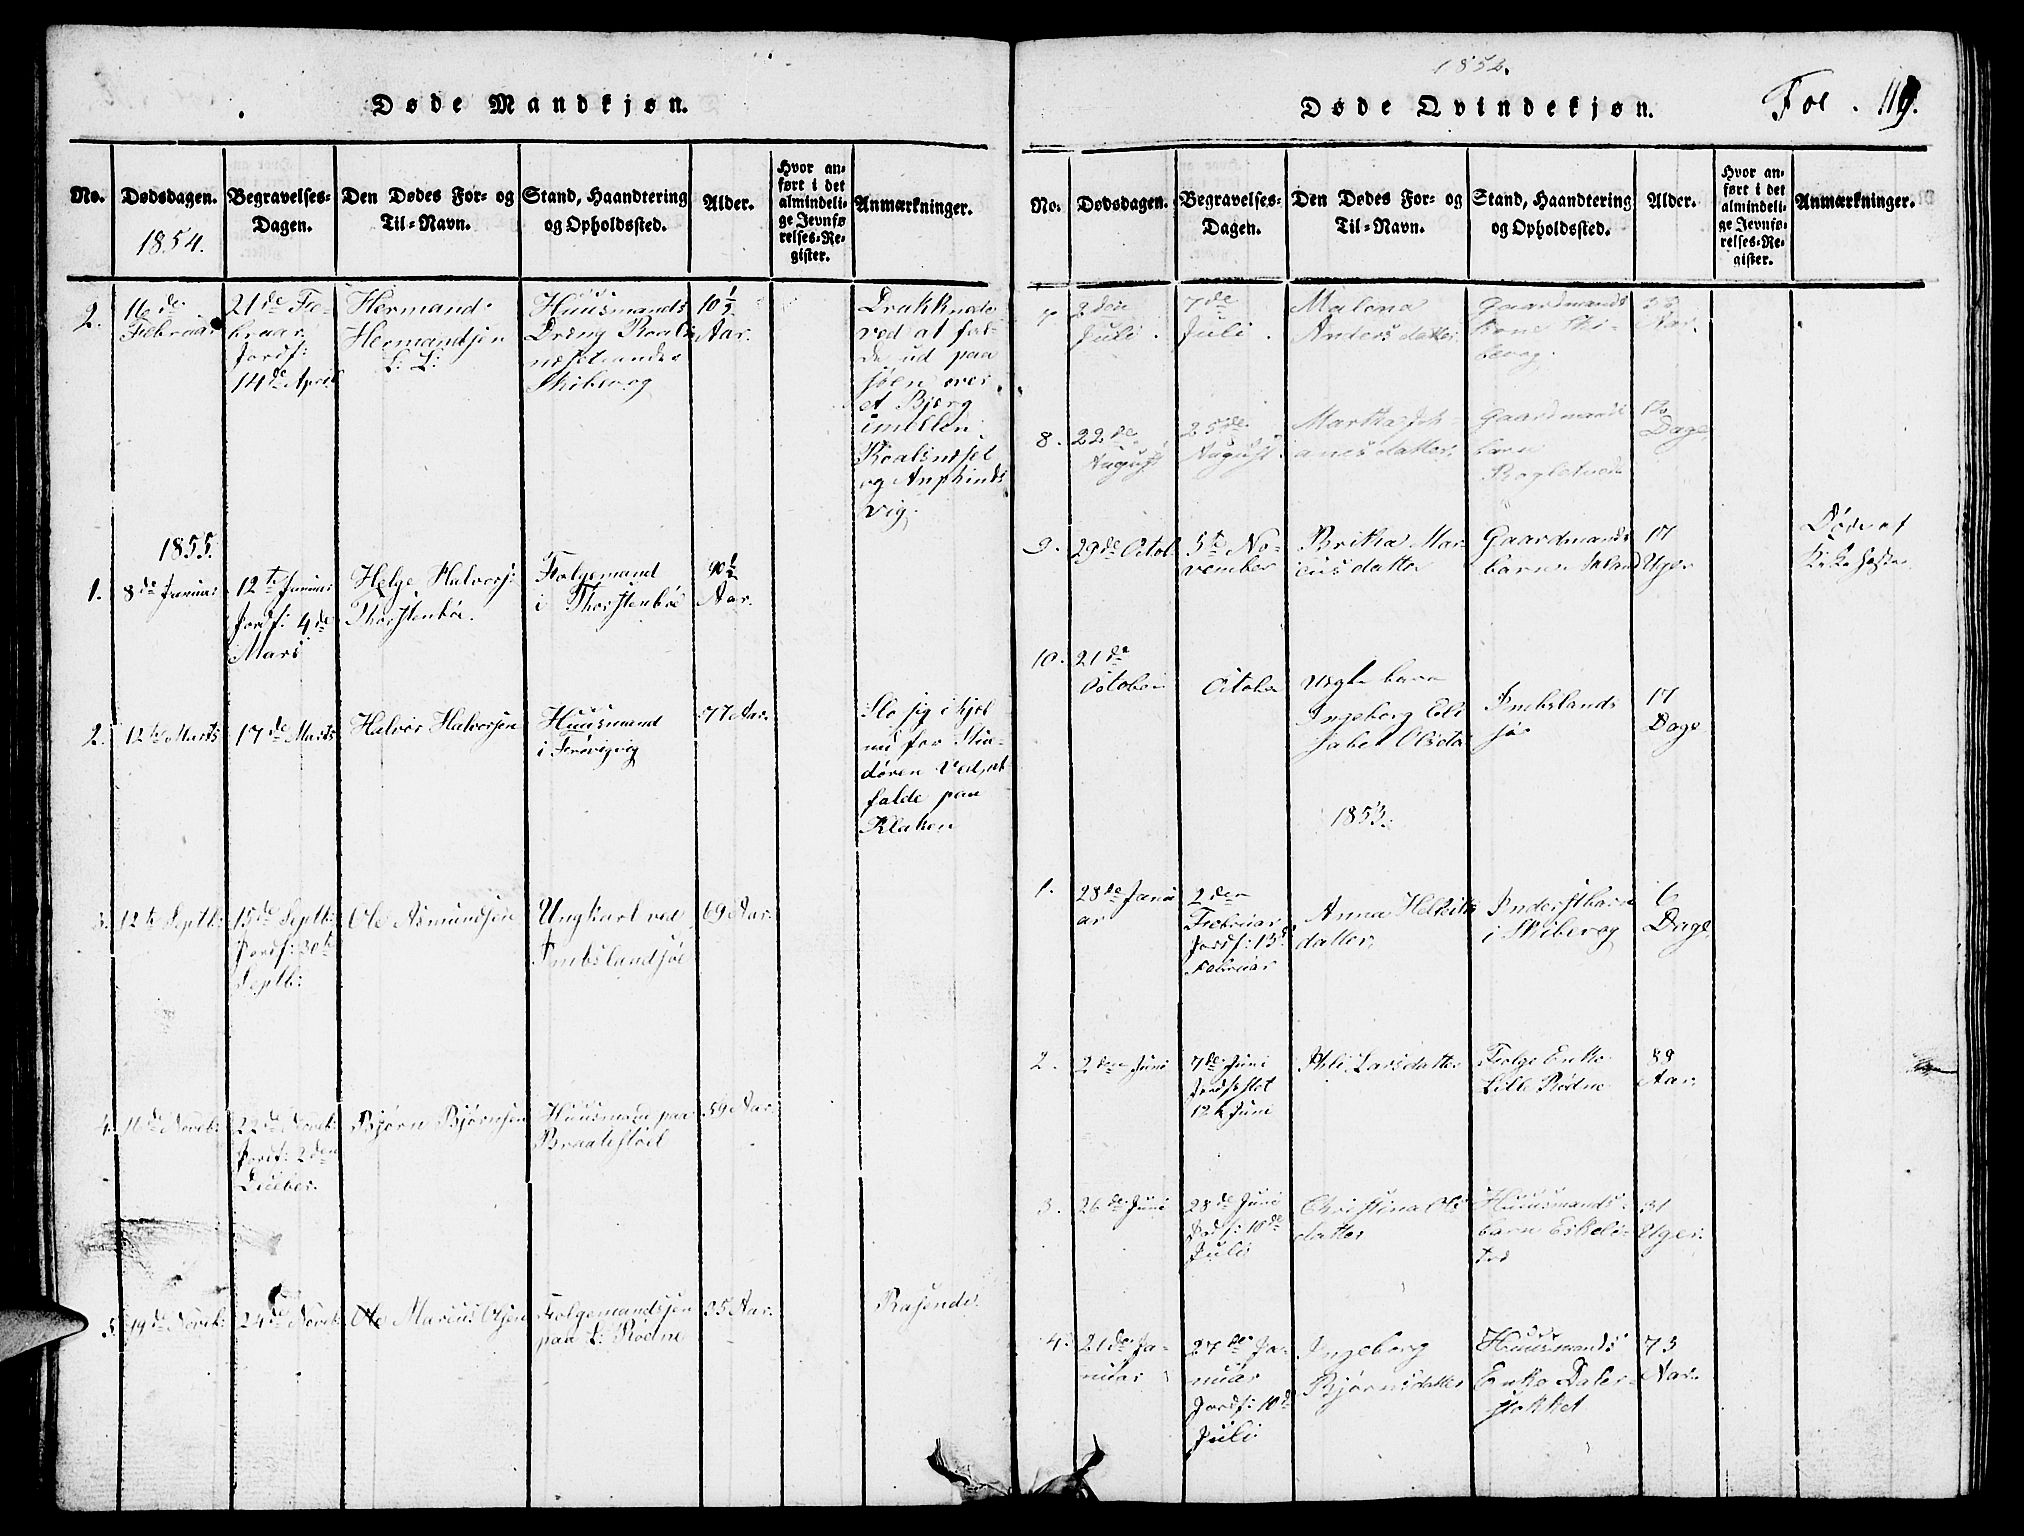 Døde Mandkjøn.
No.
Dødsdagen.
1854.
Begravelses-
Dagen.
Den Dødes For- og
Til-Navn.
Stand, Haandtering
og Opholdssted.
Alder.
Hvor an-
ført i det
almindeli-
ge Jevnfø-
relses-Re-
gister.
Anmærkninger.
2.
16de
Februar
21de Fe-
bruar
Jordf:
14de April
Hermand
Hermandsen
L: L:
Huusmands
Dreng Roals-
nesstrande
Skibevog
10 1/2
Aar.
Drukknede
ved at fal-
de ud paa
søen over
et Bjerg
imellem
Roalsneset
og Anphinds
vig.
1855.
1.
8de Januar
12te Januar
Jordf: 4de
Mars
Helge Halvors:
Thorstenbøe.
Folgemand
i Thorstenbøe
Aar.
2.
12te Marts
17de Marts
Halvor Halvorsen
Huusmand
i
77 Aar.
Slo sig i hjel
for
døren Ved at
falde paa
Klaken
3.
12te Septb:
15de Septb:
Jordf: 30te
Septb:
Ole Asmundsen
Ungkarl ved
Imbslandsjøe
69 Aar.
4.
16de Novbr:
22de Novbr:
Jordf: 2den
Decbr.
Bjørn Bjørnsen
Huusmand paa
Braatestøel
59 Aar.
5.
19de Novbr:
24de Novbr:
Ole Marius Olsen
Folgemandsøn
paa L: Rødne
35 Aar.
Rasende.
1852.
Døde Qvindekjøn.
Fol. 119.
No.
Dødsdagen.
Begravelses-
Dagen.
Den Dødes For- og
Til-Navn.
Stand, Haandtering
og Opholdssted.
Alder.
Hvor an-
ført i det
almindeli-
ge Jevnfø-
relses-Re-
gister.
Anmærkninger.
7.
2den
Juli.
7de
Juli.
Malena
Andersdatter
Gaardmands
kone Ski-
bevog.
Aar.
8.
22de
August
25de
August.
Martha Joh-
anesdatter.
Gaardmands
barn
Dage.
9.
29de Octob
5te No-
vember
Britha Mar-
cusdatter
Gaardmands
barn
17
Uger
Døde af
Kikhoste.
10.
21de
October
Octobr
barn
Ingeborg Eli-
sabet Olsdatr
Imbslands
jøe
17
Dage
1853.
1.
28de Janu
ar
2den
Februar
Jordf: 13de
Februar
Anna
datter,
Inderstbarn
i Skibevog
6
Dage.
2.
2den Juni
7de Juni
Jordfestet
12te Juni
Larsdatter
Folge Enke
Lille Rødne
88
Aar.
3.
26de Juni
28de Juni
Jordf: 10de
Juli
Christina Ols
datter
Huusmands-
barn Eskels-
tad
31
Uger.
4.
21de Ja-
nuar
27de Ja-
nuar
Jordf: 10de
Juli
Ingeborg
Bjørnsdatter
Huusmands
Enke Daler-
stokket
73
Aar.